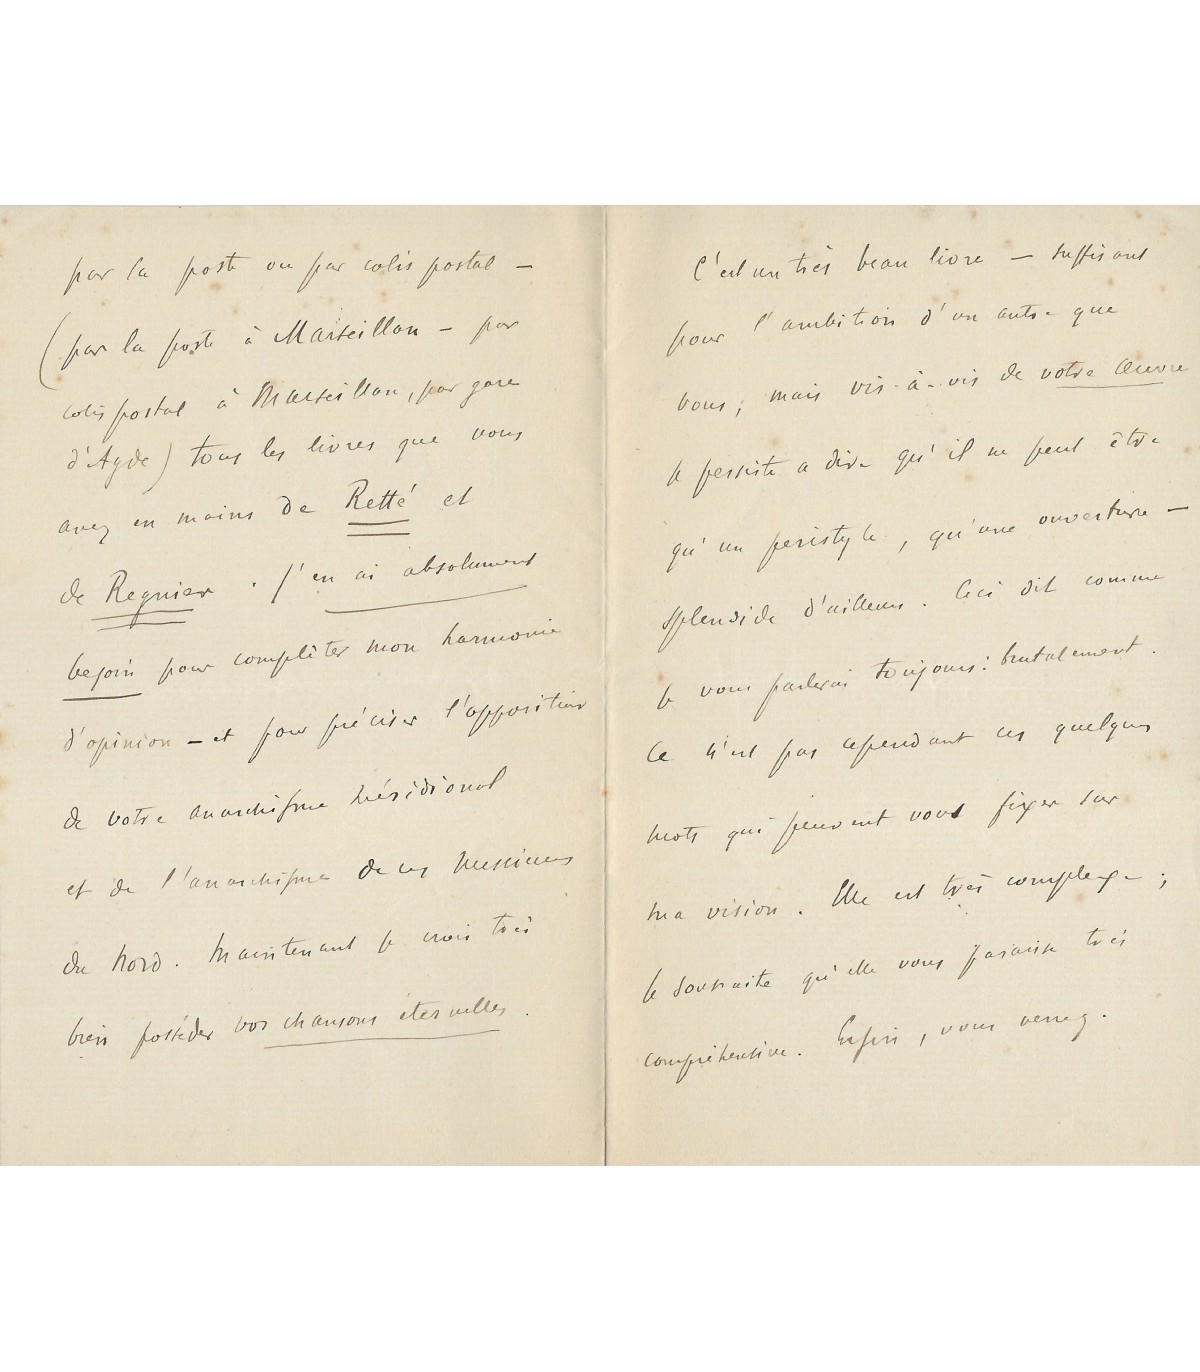 par la poste ou par colis postal —
(par la poste à Marseillan — par
colis postal à Marseillan, par gare
d'Agde) tous les livres que vous
avez en mains de Retté et
de Regnier. J'en ai absolument
besoin pour complèter mon harmonie
d'opinion — et pour préciser l'opposition
de votre anarchisme Méridional
et de l'anarchisme de ces Messieurs
du Nord. Maintenant je crois très
bien posséder vos chansons éternelles.
C'est un très beau livre — suffisant
pour l'ambition d'un autre que
vous; mais vis-à-vis de votre Œuvre
je persiste a dire qu'il ne peut être
qu'un peristyle, qu'une ouverture —
splendide d'ailleurs. Ceci dit comme
je vous parlerai toujours: brutalement.
Ce n'est pas cependant ces quelques
mots qui peuvent vous fixer sur
ma vision. Elle est très complexe;
je souhaite qu'elle vous paraisse très
compréhensive. Enfin, vous verrez.